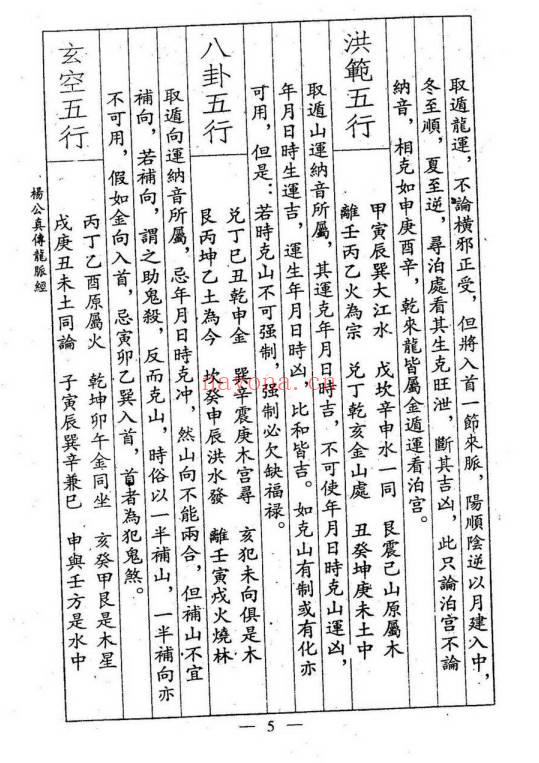 取遁龍運，不論橫邪正受，但將入首一節來脈，陽順陰逆以月建入中，
冬至順，夏至逆，尋泊處看其生克旺泄，斷其吉凶，此只論泊宮不論
納音，相克如申庚酉辛，乾來龍皆屬金遁運看泊宮。
洪範五行
甲寅辰巽大江水　戊坎辛申水一同　艮震己山原屬木
離壬丙乙火為宗　兌丁乾亥金山處　丑癸坤庚未土中
取遁山運納音所屬，其運克年月日時吉，不可使年月日時克山運凶，
年月日時生運吉，運生年月日時凶，比和皆吉。如克山有制或有化亦
可用，但是：若時克山不可强制，强制必欠缺福禄。
八卦五行
兌丁巳丑乾申金　巽辛震庚木宮尋　亥犯未向俱是木
艮丙坤乙土為今　坎癸申辰洪水發　離壬寅戌火燒林
取遁向運納音所屬，忌年月日時克冲，然山向不能兩合，但補山不宜
補向，若補向，謂之助鬼殺，反而克山，時俗以一半補山，一半補向亦
不可用，假如金向入首，忌寅卯乙巽入首，首者為犯鬼煞。
玄空五行
丙丁乙酉原屬火　乾坤卯午金同坐　亥癸甲艮是木星
戌庚丑未土同論　子寅辰巽辛兼巳　申與壬方是水中
楊公真傳龍脈經
— 5 —
nayona.cn